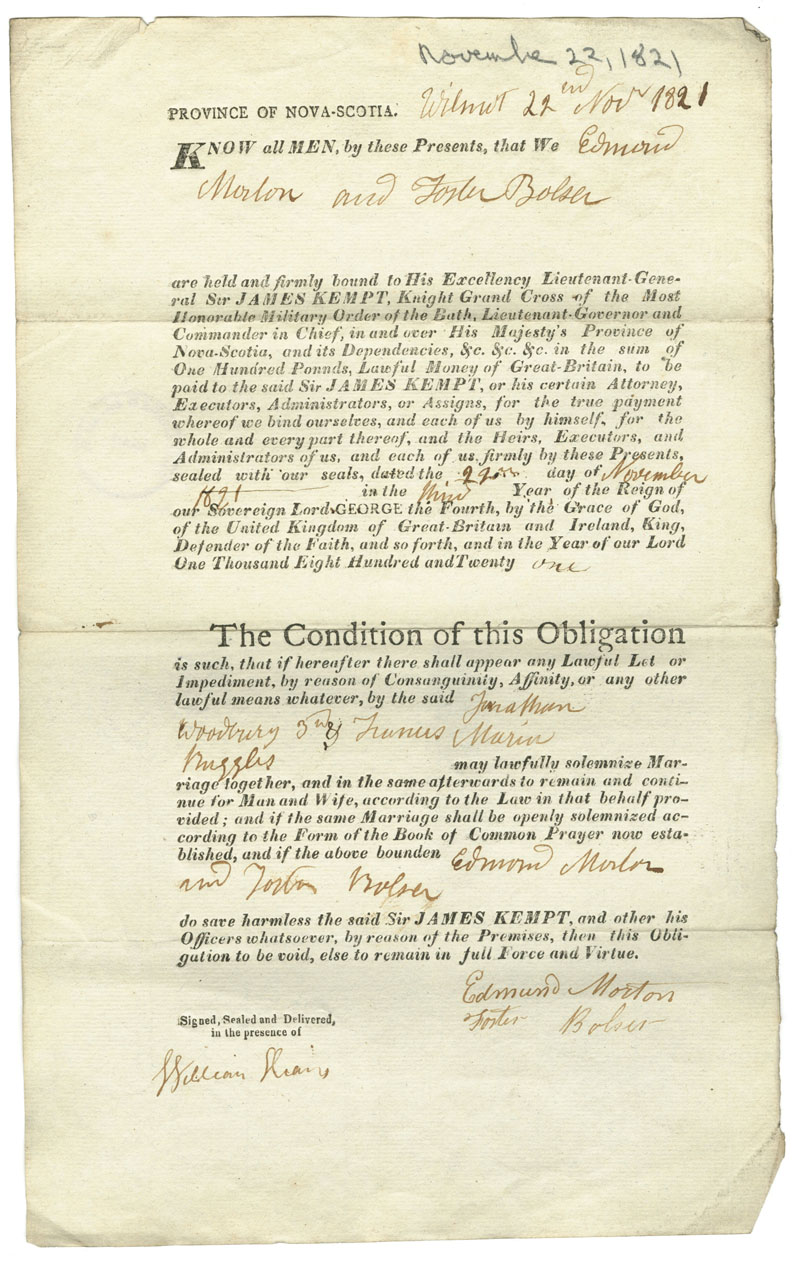 November 22, 1821
PROVINCE OF NOVA-SCOTIA. Wilmot 22nd Novr 1821
KNOW all MEN, by these Presents, that We Edmund
Morton and Foster Bolser
are held and firmly bound to His Excellency Lieutenant-Gene-
ral Sir JAMES KEMPT, Knight Grand Cross of the Most
Honorable Military Order of the Bath, Lieutenant-Governor and
Commander in Chief, in and over His Majesty's Province of
Nova-Scotia, and its Dependencies, &c. &c. &c. in the sum of
One Hundred Ponnds, Lawful Money of Great-Britain, to be
paid to the said Sir JAMES KEMPT, or his certain Attorney,
Executors, Administrators, or Assigns, for the true payment
whereof we bind ourselves, and each of us by himself, for the
whole and every part thereof, and the Heirs, Executors, and
Administrators of us, and each of us firmly by these Presents,
sealed with our seals, dated the 22nd day of November
1821 in the third Year of the Reign of
our Sovereign Lord GEORGE the Fourth, by the Grace of God,
of the United Kingdom of Great-Britain and Ireland, King,
Defender of the Faith, and so forth, and in the Year of our Lord
One Thousand Eight Hundred and Twenty one
The Condition of this Obligation
is such, that if hereafter there shall appear any Lawful Let or
Impediment, by reason of Consanguinity, Affinity, or any other
lawful means whatever, by the said Jonathan
Woodbury 3rd & Frances Maria
Ruggles may lawfully solemnize Mar-
riage together, and in the same afterwards to remain and conti-
nue for Man and Wife, according to the Law in that behalf pro-
vided; and if the same Marriage shall be openly solemnized ac-
cording to the Form of the Book of Common Prayer now esta-
blished, and if the above bounden Edmund Morton
and Foster Bolser
do save harmless the said Sir JAMES KEMPT, and other his
Officers whatsoever, by reason of the Premises, then this Obli-
gation to be void, else to remain in full Force and Virtue.
Edmund Morton
Foster Bolser
Signed, Sealed and Delivered,
in the presence of
William